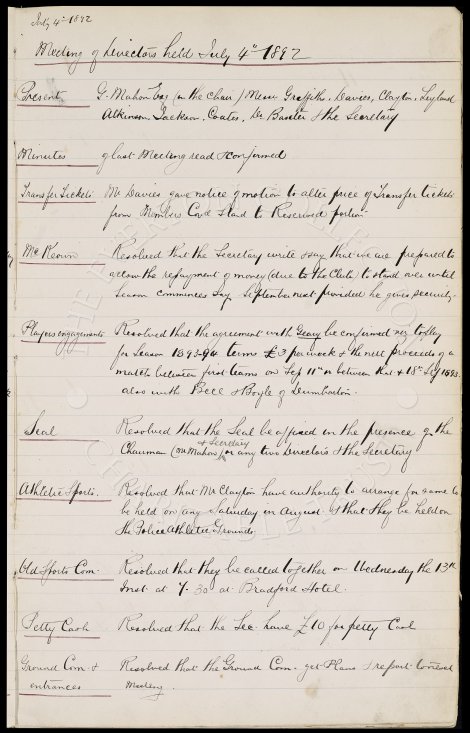 July 4th 1892
Meeting of Directors held July 4th 1892
Present G. Mahon Esq (in the chair) Messrs Griffiths, Davies, Clayton, Leyland
Atkinson, Jackson, Coates, Dr Baxter & the Secretary
Minutes of last Meeting read & confirmed
Transfer Tickets Mr Davies gave notice of motion to alter price of Transfer tickets
from Members Covd Stand to Reserved portion
Mc Keown Resolved that the Secretary write & say that we are prepared to
allow the repayment of money (due to the Club) to stand over until
Season commences say September next provided he gives security
Players engagements Resolved that the agreement with Geary be confirmed viz to play
for Season 1893-94 terms £3 per week & the nett proceeds of a
match between first teams on Sep 11th or between that & 18th Sep 1893
also with Bell & Boyle of Dumbarton.
Seal Resolved that the Seal be affixed in the presence of the
Chairman (Mr Mahon) & Secretary or any two Directors & the Secretary
Athletic Sports. Resolved that Mr Clayton have authority to arrange for same to
be held on any Saturday in August & that they be held on
the Police Athletic Grounds
Old Sports Com. Resolved that they be called together on Wednesday the 13th
Inst at 7.30 at Bradford Hotel.
Petty Cash Resolved that the Sec. have £10 for petty Cash
Ground Com. & Resolved that the Ground Com. get Plans & report to next
entrances Meeting.
THE EVERTON COLLECTION
CHARITABLE TRUST